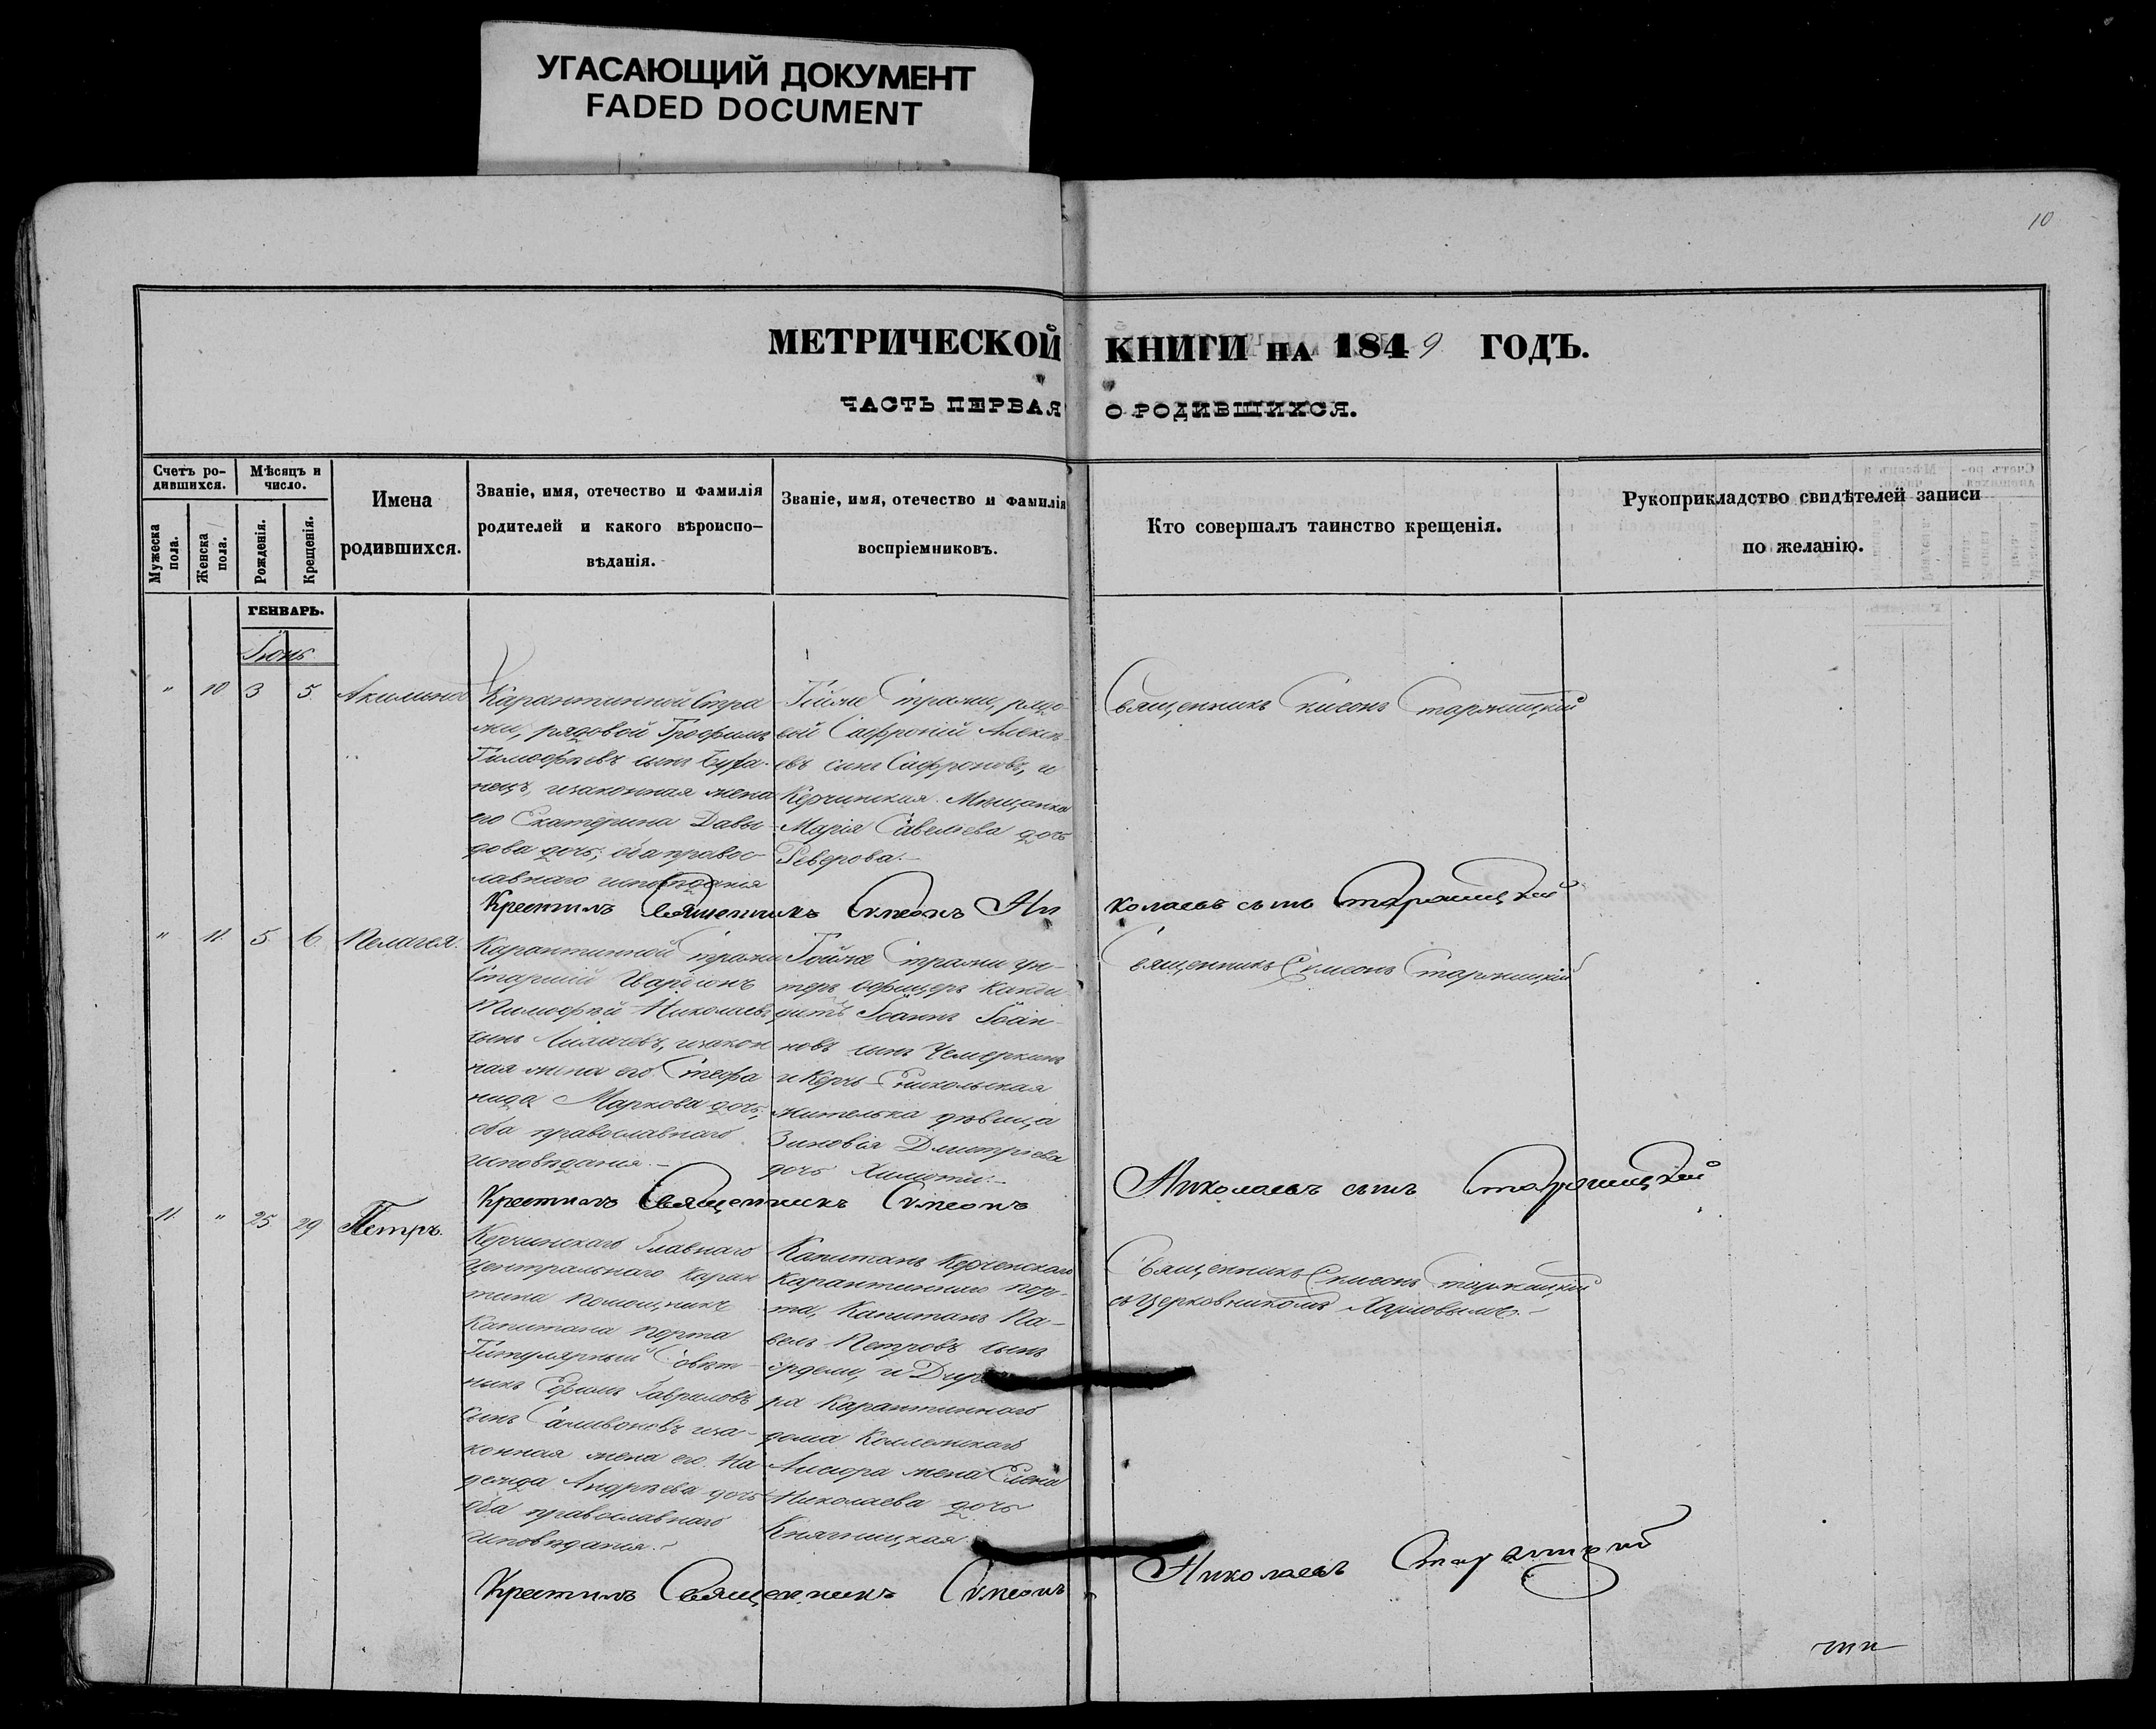 УГАСАЮЩИЙ ДОКУМЕНТ
FADED DOCUMENT
10
МЕТРИЧЕСКОЙ КНИГИ НА 1849 ГОДЪ.
ЧАСТЬ ПЕРВАЯ О РОДИВШИХСЯ.
Счетъ ро-
дившихся.
Мужеска
пола.
Женска
пола.
Мѣсяцъ и
число.
Рожденія.
Крещенія.
Имена
родившихся.
Званіе, имя, отечество и фамилія
родителей и какого вѣроиспо-
вѣданія.
Званіе, имя, отечество и фамилія
воспріемниковъ.
Кто совершалъ таинство крещенія.
Рукоприкладство свидѣтелей записи
по желанію.
ГЕНВАРЬ.
Іюнь
" 10 3 5 Акилина
Карантинной Стра
жи, рядовой Трофимъ
Тимофѣевъ сынъ
нецъ, изаконная жена
его Екатерина Давы
дова дочь, оба правос-
лавнаго исповѣданія
Тойже Стражи, рядо-
вой Сафроній Алексѣ-
евъ сынъ Сафроновъ, и
Керчинская Мѣщанка
Марія Савельева дочь
Реверова.
Священникъ Сѵмеонъ Старжицкій
Крестилъ Священникъ Сѵмеонъ Ни
колаевъ сынъ Старжицкій
" 11. 5 6. Пелагея.
Карантинной Стражи
Старшій
Тимофѣй Николаевъ
сынъ Лихачевъ, изакон
ная жена его Стефа
нида Маркова дочь,
оба православнаго
исповѣданія.
Тойже Стражи Ун-
теръ Офицеръ Канди
датъ Іоаннъ Іоан-
новъ сынъ Чемеркинъ
и Керчь-Еникольская
жителька дѣвица
Зиновія Димитріева
дочь
Священникъ Сѵмеонъ Старжицкій
Крестилъ Священникъ Сѵмеонъ
Николаевъ сынъ Старжицкій
11. " 25 29 Петръ.
Керчинскаго Главнаго
Центральнаго Каран
тина Помощникъ
Капитана Порта
Титулярный Совѣт-
никъ Ефимъ Гавриловъ
сынъ Саливоновъ иза-
конная жена его На
дежда Андрѣева дочь
оба православнаго
исповѣданія.
Капитанъ Керченскаго
Карантиннаго Пор-
та, Капитанъ Па-
велъ Петровъ сынъ
и
ра Карантиннаго
дома Коллежскаго
Ассесора жена Елена
Николаева дочь
Княгницкая.
Священникъ Сѵмеонъ Старжицкій
съ Церковникомъ
Крестилъ Священникъ Сѵмеонъ
Николаевъ Старжицкій